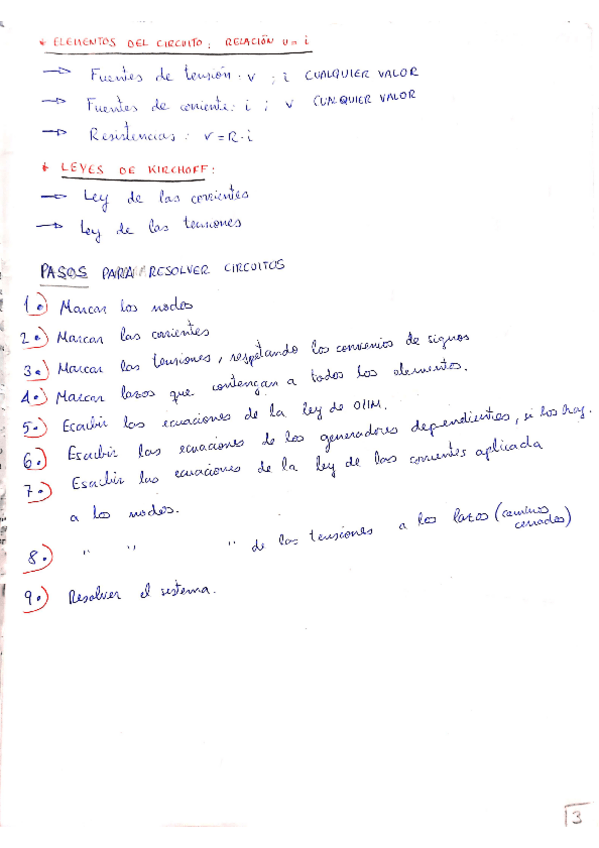 * ELEMENTOS DEL CIRCUITO: RELACIÓN v-i
→ Fuentes de tensión: v ; i CUALQUIER VALOR
→ Fuentes de corriente: i ; v CUALQUIER VALOR
→ Resistencias: v=R·i
* LEYES DE KIRCHOFF:
→ Ley de las corrientes
→ Ley de las tensiones
PASOS PARA RESOLVER CIRCUITOS
1.) Marcar los nodos
2.) Marcar las corrientes
3.) Marcar las tensiones, respetando los convenios de signos
4.) Marcar lazos que contengan a todos los elementos.
5.) Escribir las ecuaciones de la ley de OHM.
6.) Escribir las ecuaciones de los generadores dependientes, si los hay.
7.) Escribir las ecuaciones de la ley de las corrientes aplicada
a los nodos.
8.) " " " de las tensiones a los lazos (caminos
cerrados)
9.) Resolver el sistema.
3